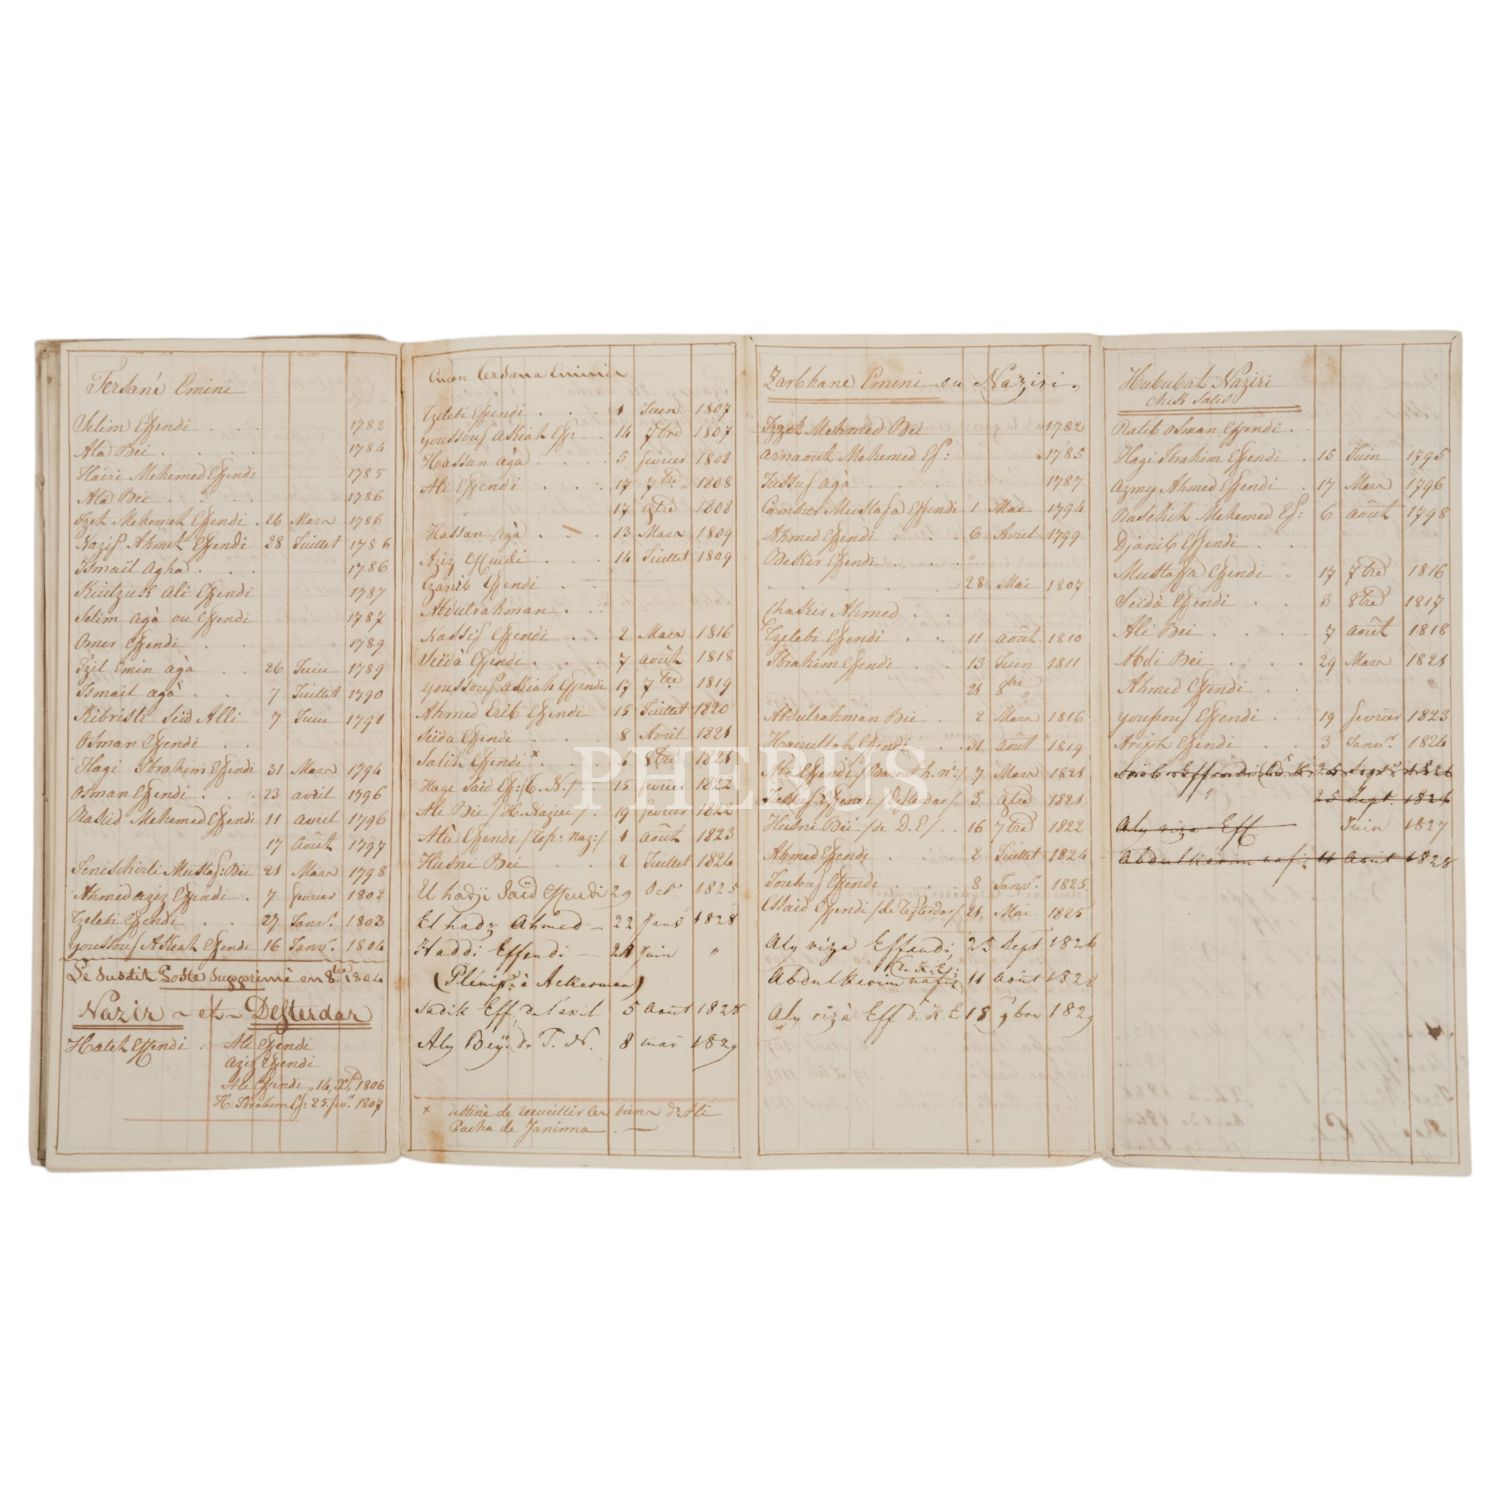 Tersané Emini
Selim Effendi 1782
Ata Bei 1784
Hairi Mehemed Effendi 1785
Ata Bei 1786
Izet Mehemet Effendi 26 Mars 1786
Nazif Ahmet Effendi 28 Juillet 1786
Ismail Agha 1786
Kutzuk Ali Effendi 1787
Selim Agà ou Effendi 1787
Omer Effendi 1789
Izil Emin agà 26 Juin 1789
Ismail agà 7 Juillet 1790
Kibrisli Seïd Alli 7 Juin 1791
Osman Effendi
Hagi Ibrahim Effendi 31 Mars 1794
Osman Effendi 23 avril 1796
Rasid Mehemed Effendi 11 avril 1796
17 Août 1797
Mustaf: Bei 21 Mars 1798
Ahmed aziz Effendi 7 fevrier 1802
Tzelebi Effendi 27 Janv: 1803
Youssouf Akiah Effendi 16 Janv: 1804
Le susdit Poste supprimé en 8bre 1804
Nazir et Defterdar
Hateh Effendi Ali Effendi
Aziz Effendi
Ali Effendi 14 1806
H. Ibrahim Ef: 25 fev: 1807
Tersana Eminin
Tzelebi Effendi 1 Juin 1807
Youssouf Akiah Ef: 14 7bre 1807
Hassan agà 5 fevrier 1808
Ali Effendi 17 7bre 1808
17 1808
Hassan Agà 13 Mars 1809
Aziz Effendi 14 Juillet 1809
Effendi
Abdulrahman
Nassif Effendi 2 Mars 1816
Seïdà Effendi 7 août 1818
Youssouf Akiah Effendi 17 7bre 1819
Ahmed Erib Effendi 15 Juillet 1820
Seïda Effendi 8 Avril 1821
Salih Effendi x 8bre 1821
Hagi Said Ef: 15 fevrier 1822
Ali Bie /H. Naziri/ 19 fevrier 1822
Atà Effendi /Top: naz:/ 1 août 1823
Husni Bei 2 Juillet 1824
El hadji Said Effendi 29 Oct. 1825
El hadz Ahmed 22 Janv 1828
Haddi Effendi 24 Juin "
(Plénip: à Ackerman)
Sadik Eff de l'exil 5 Août 1828
Aly Bey: de T. N. 8 mai 1829
x destiné de recueillir les biens d'Ali
Pacha de Janinna
Zarbhane Emini ou Naziri.
Izzet Mehmed Bei 1782
Arnaout Mehemed Ef: 1785
Jussuf Agà 1787
Mustafa Effendi 1 Mai 1794
Ahmed Effendi 6 Avril 1799
Bekir Effendi
28 Mai 1807
Chakir Ahmed
Tzelebi Effendi 11 août 1810
Ibrahim Effendi 13 Juin 1811
21 8bre "
Abdulrahman Bei 2 Mars 1816
Hairullah Effendi 31 août 1819
Effendi 7 Mars 1821
Effendi /Defterdar/ 3 1821
Husni Bei /de D.E/ 16 7bre 1822
Ahmed Effendi 2 Juillet 1824
Effendi 8 Janv: 1825
Said Effendi /de Tefterdar/ 21 Mai 1825
Aly riza Effendi 25 Sept 1826
Abdulkerim nafiz 11 Août 1828
Aly rizà Eff 18 9bre 1829
Hububat Naziri
Ratib Osman Effendi
Hagi Ibrahim Effendi 15 Juin 1795
Azmy Ahmed Effendi 17 Mars 1796
Raschit Mehemed Ef: 6 août 1798
Djanib Effendi
Mustaffa Effendi 17 7bre 1816
Seïdà Effendi 3 8bre 1817
Ali Bei 7 août 1818
Abdi Bei 29 Mars 1821
Ahmed Effendi
Youssouf Effendi 19 fevrier 1823
Effendi 3 Janv: 1824
Effendi 25 Sept: 1826
25 Sept. 1826
Aly riza Eff Juin 1827
Abdulkerim nafiz 11 Août 1828
PHEBUS